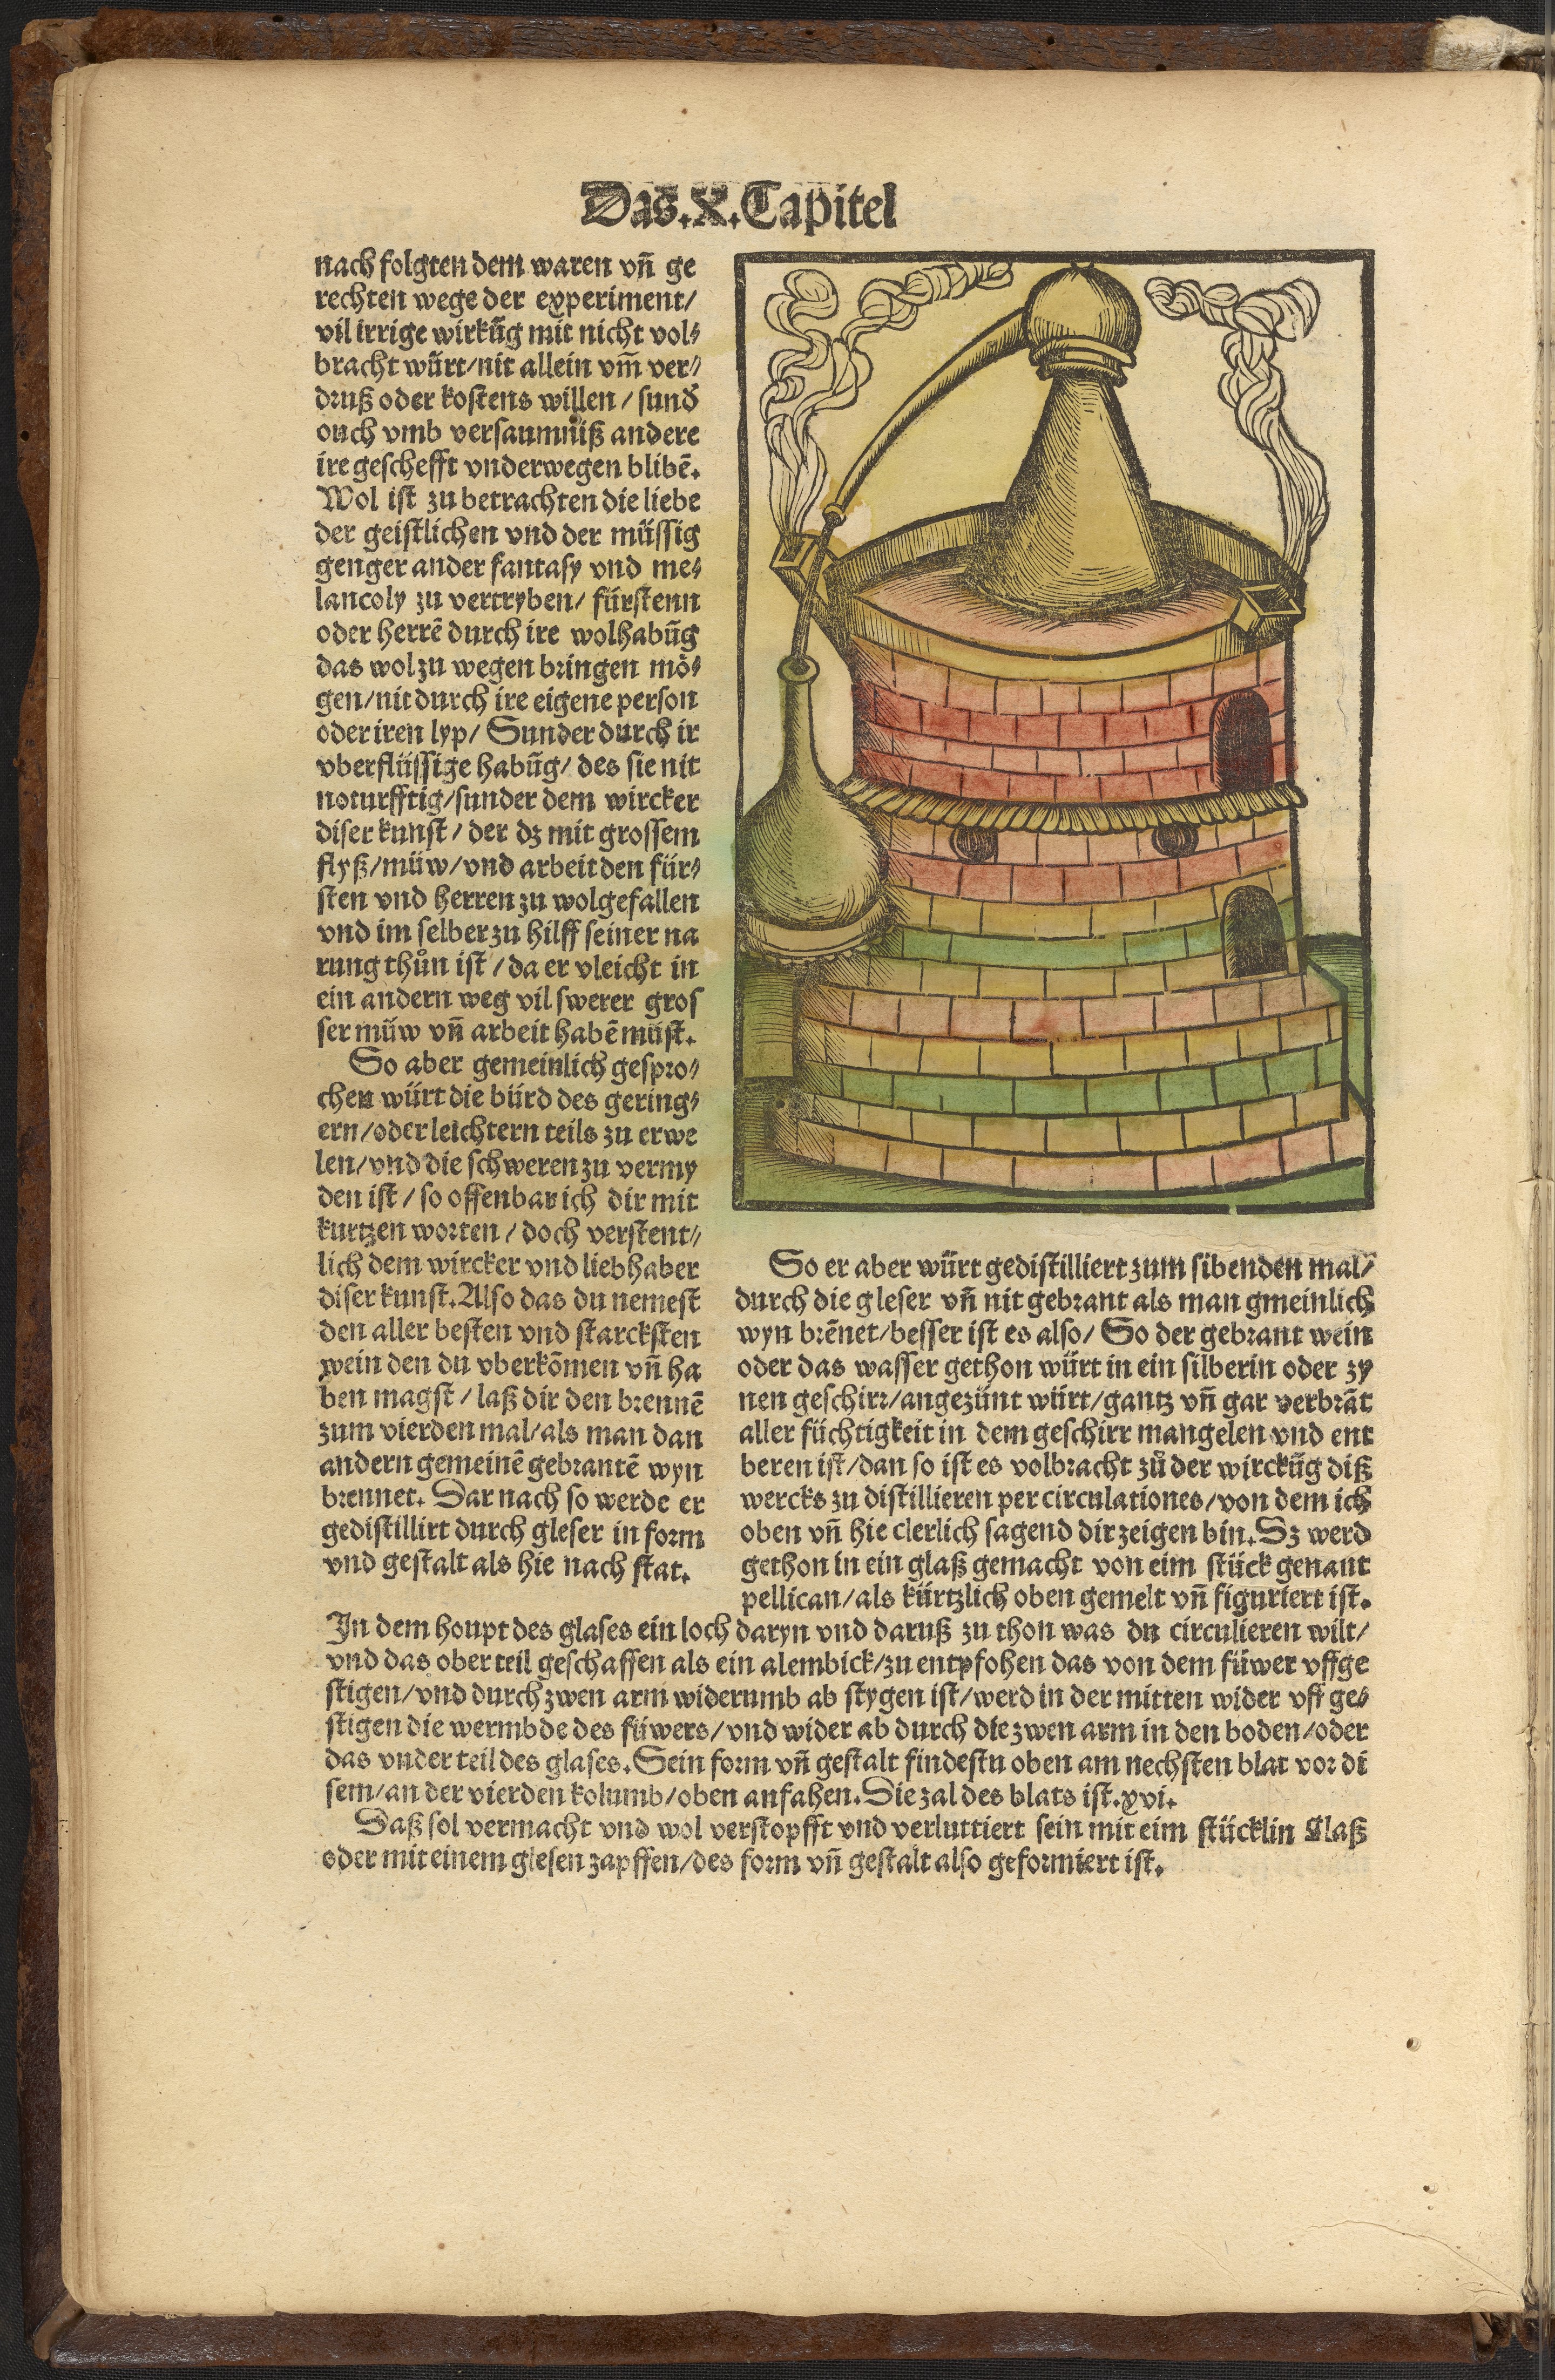 Das.X.Capitel
nach folgten dem waren vñ ge
rechten wege der experiment/
vil irrige wirkūg mit nicht vol⸗
bracht würt/nit allein vm̄ ver⸗
druß oder kostens willen / sund̕
ouch vmb versaumniß andere
ire geschefft vnderwegen blibē.
Wol ist zu betrachten die liebe
der geistlichen vnd der müssig
genger ander fantasy vnd me⸗
lancoly zu vertryben/ fürstenn
oder herrē durch ire wolhabūg
das wol zu wegen bringen mö⸗
gen/nit durch ire eigene person
oder iren lyp/ Sunder durch ir
vberflüssige habūg/ des sie nit
noturfftig/sunder dem wircker
diser kunst / der dz mit grossem
flyß/müw/vnd arbeit den für⸗
sten vnd herren zu wolgefallen
vnd im selber zu hilff seiner na
rung thůn ist / da er vleicht in
ein andern weg vil swerer gros
ser müw vñ arbeit habē müst.
So aber gemeinlich gespro⸗
chen würt die bürd des gering⸗
ern/oder leichtern teils zu erwe
len/vnd die schweren zu vermy
den ist / so offenbar ich dir mit
kurtzen worten / doch verstent⸗
lich dem wircker vnd liebhaber
diser kunst.Also das du nemest
den aller besten vnd starcksten
wein den du vberkōmen vñ ha
ben magst / laß dir den brennē
zum vierden mal/als man dan
andern gemeinē gebrantē wyn
brennet. Dar nach so werde er
gedistillirt durch gleser in form
vnd gestalt als hie nach stat.
So er aber würt gedistilliert zum sibenden mal/
durch die gleser vñ nit gebrant als man gmeinlich
wyn brēnet/besser ist es also/ So der gebrant wein
oder das wasser gethon würt in ein silberin oder zy
nen geschirr/angezünt würt/gantz vñ gar verbrāt
aller füchtigkeit in dem geschirr mangelen vnd ent
beren ist/dan so ist es volbracht zů der wirckūg diß
wercks zu distillieren per circulationes/von dem ich
oben vñ hie clerlich sagend dir zeigen bin.Dz werd
gethon in ein glaß gemacht von eim stück genant
pellican/als kürtzlich oben gemelt vñ figuriert ist.
In dem houpt des glases ein loch daryn vnd daruß zu thon was du circulieren wilt/
vnd das ober teil geschaffen als ein alembick/zu entpfohen das von dem füwer vffge
stigen/vnd durch zwen arm widerumb ab stygen ist/werd in der mitten wider vff ge⸗
stigen die wermbde des füwers/vnd wider ab durch die zwen arm in den boden/oder
das vnder teil des glases.Sein form vñ gestalt findestu oben am nechsten blat vor di
sem/an der vierden kolumb/oben anfahen.Die zal des blats ist.xvi.
Daß sol vermacht vnd wol verstopfft vnd verluttiert sein mit eim stücklin Glaß
oder mit einem glesen zapffen/des form vñ gestalt also geformiert ist.